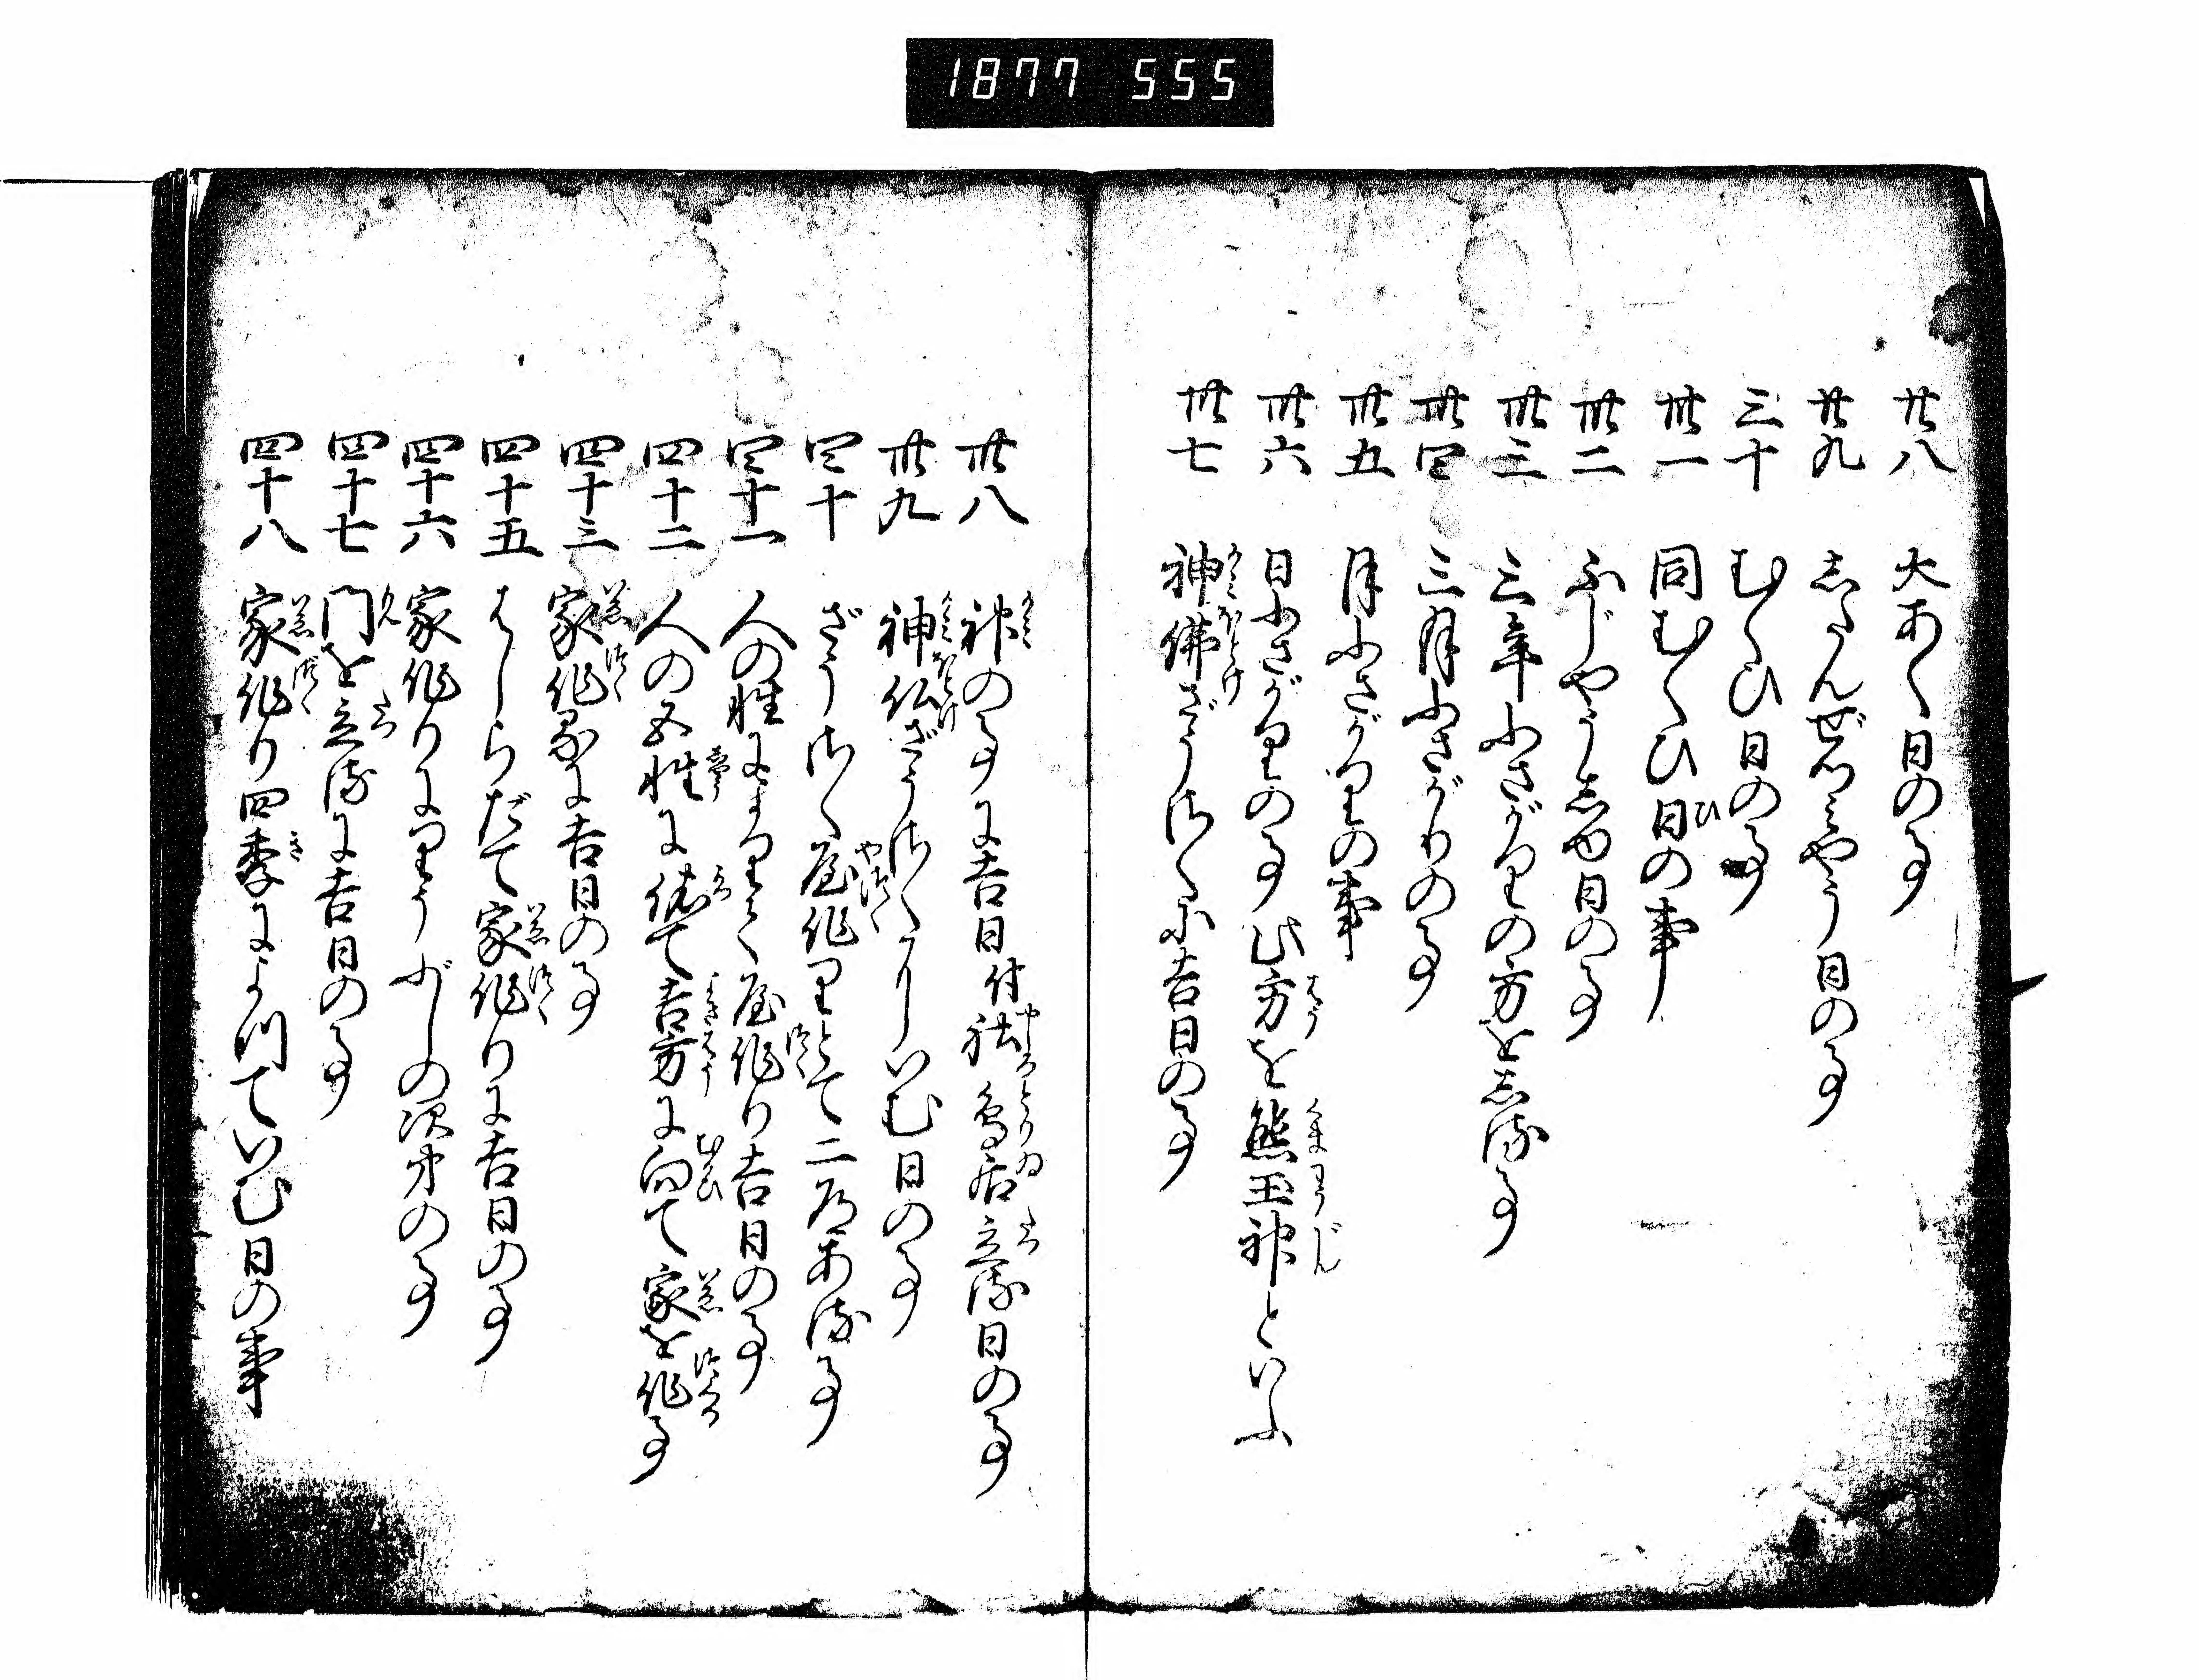 1877 555
廿八 大あく日の事
廿九 志たんぜつミやう日の事
三十 むくひ日の事
卅一 同むくひ日の事
卅二 ふじやう志や日の事
卅三 三年ふさがりの方を志る事
卅四 三月ふさがりの事
卅五 月ふさがりの事
卅六 日ふさがりの事此方を熊王神といふ
卅七 神佛ざうさくに吉日の事
卅八 神の事に吉日付社鳥居立る日の事
卅九 神仏ざうさくにいむ日の事
四十 ざうさく屋作りとて二品ある事
四十一 人の性によりて屋作り吉日の事
四十二 人の五性に依て吉方に向て家を作る事
四十三 家作るに吉日の事
四十五 はしらだて家作りに吉日の事
四十六 家作りにりうぶしの次第の事
四十七 門を立るに吉日の事
四十八 家作り四季によつていむ日の事